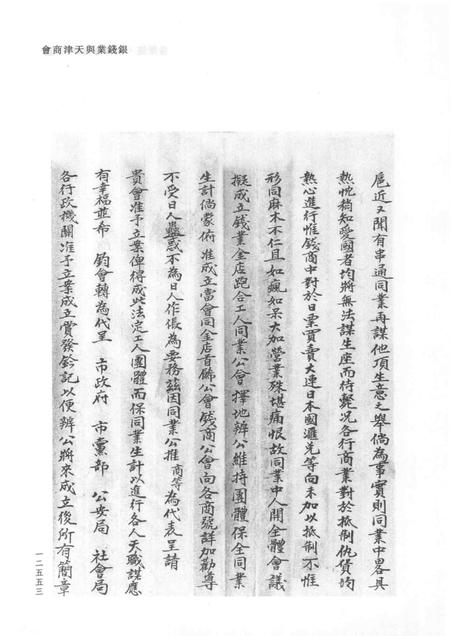 銀錢業與天津商會
扈近又聞有串通同業再謀他項生意之舉倘為事實則同業中畧具
熱忱稍知愛國者均將無法謀生座而待斃况各行商業對於抵制仇貨均
熱心進行惟錢商中對於日票買賣大連日本國滙兌等向未加以抵制不惟
形同麻木不仁且如瘋如呆大加營業殊堪痛恨故同業中人開全體會議
擬成立錢業金店跑合工人同業公會擇地辦公維持團體保全同業
生計倘蒙俯准成立當會同金店首飾公會錢商公會向各商號詳加勸導
不受日人蠱惑不為日人作倀為要務茲因同業公推商等為代表呈請
貴會准予立案俾得成此法定工人團體而保同業生計以進行各人天職謀應
有幸福並希 鈞會轉為代呈 市政府 市黨部 公安局 社會局
各行政機關准予立案成立賞發鈐記以便辦公將來成立後所有簡章
一二五五三